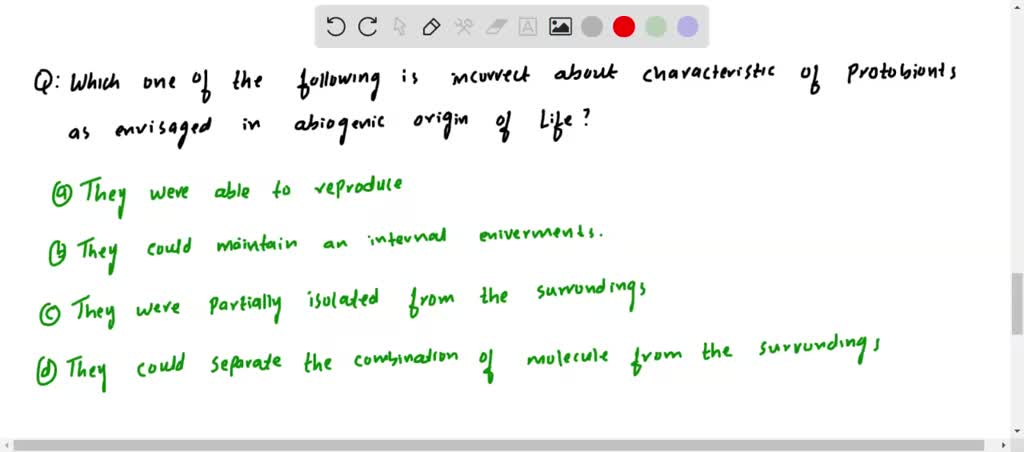 Q: Which one of the following is incurrect about characteristic of Protobionts
as envisaged in abiogenic origin of Life?
(a) They were able to reproduce
(b) They could maintain an internal eniverments.
(c) They were partially isolated from the surrondings
(d) They could separate the combination of molecule from the surrundings